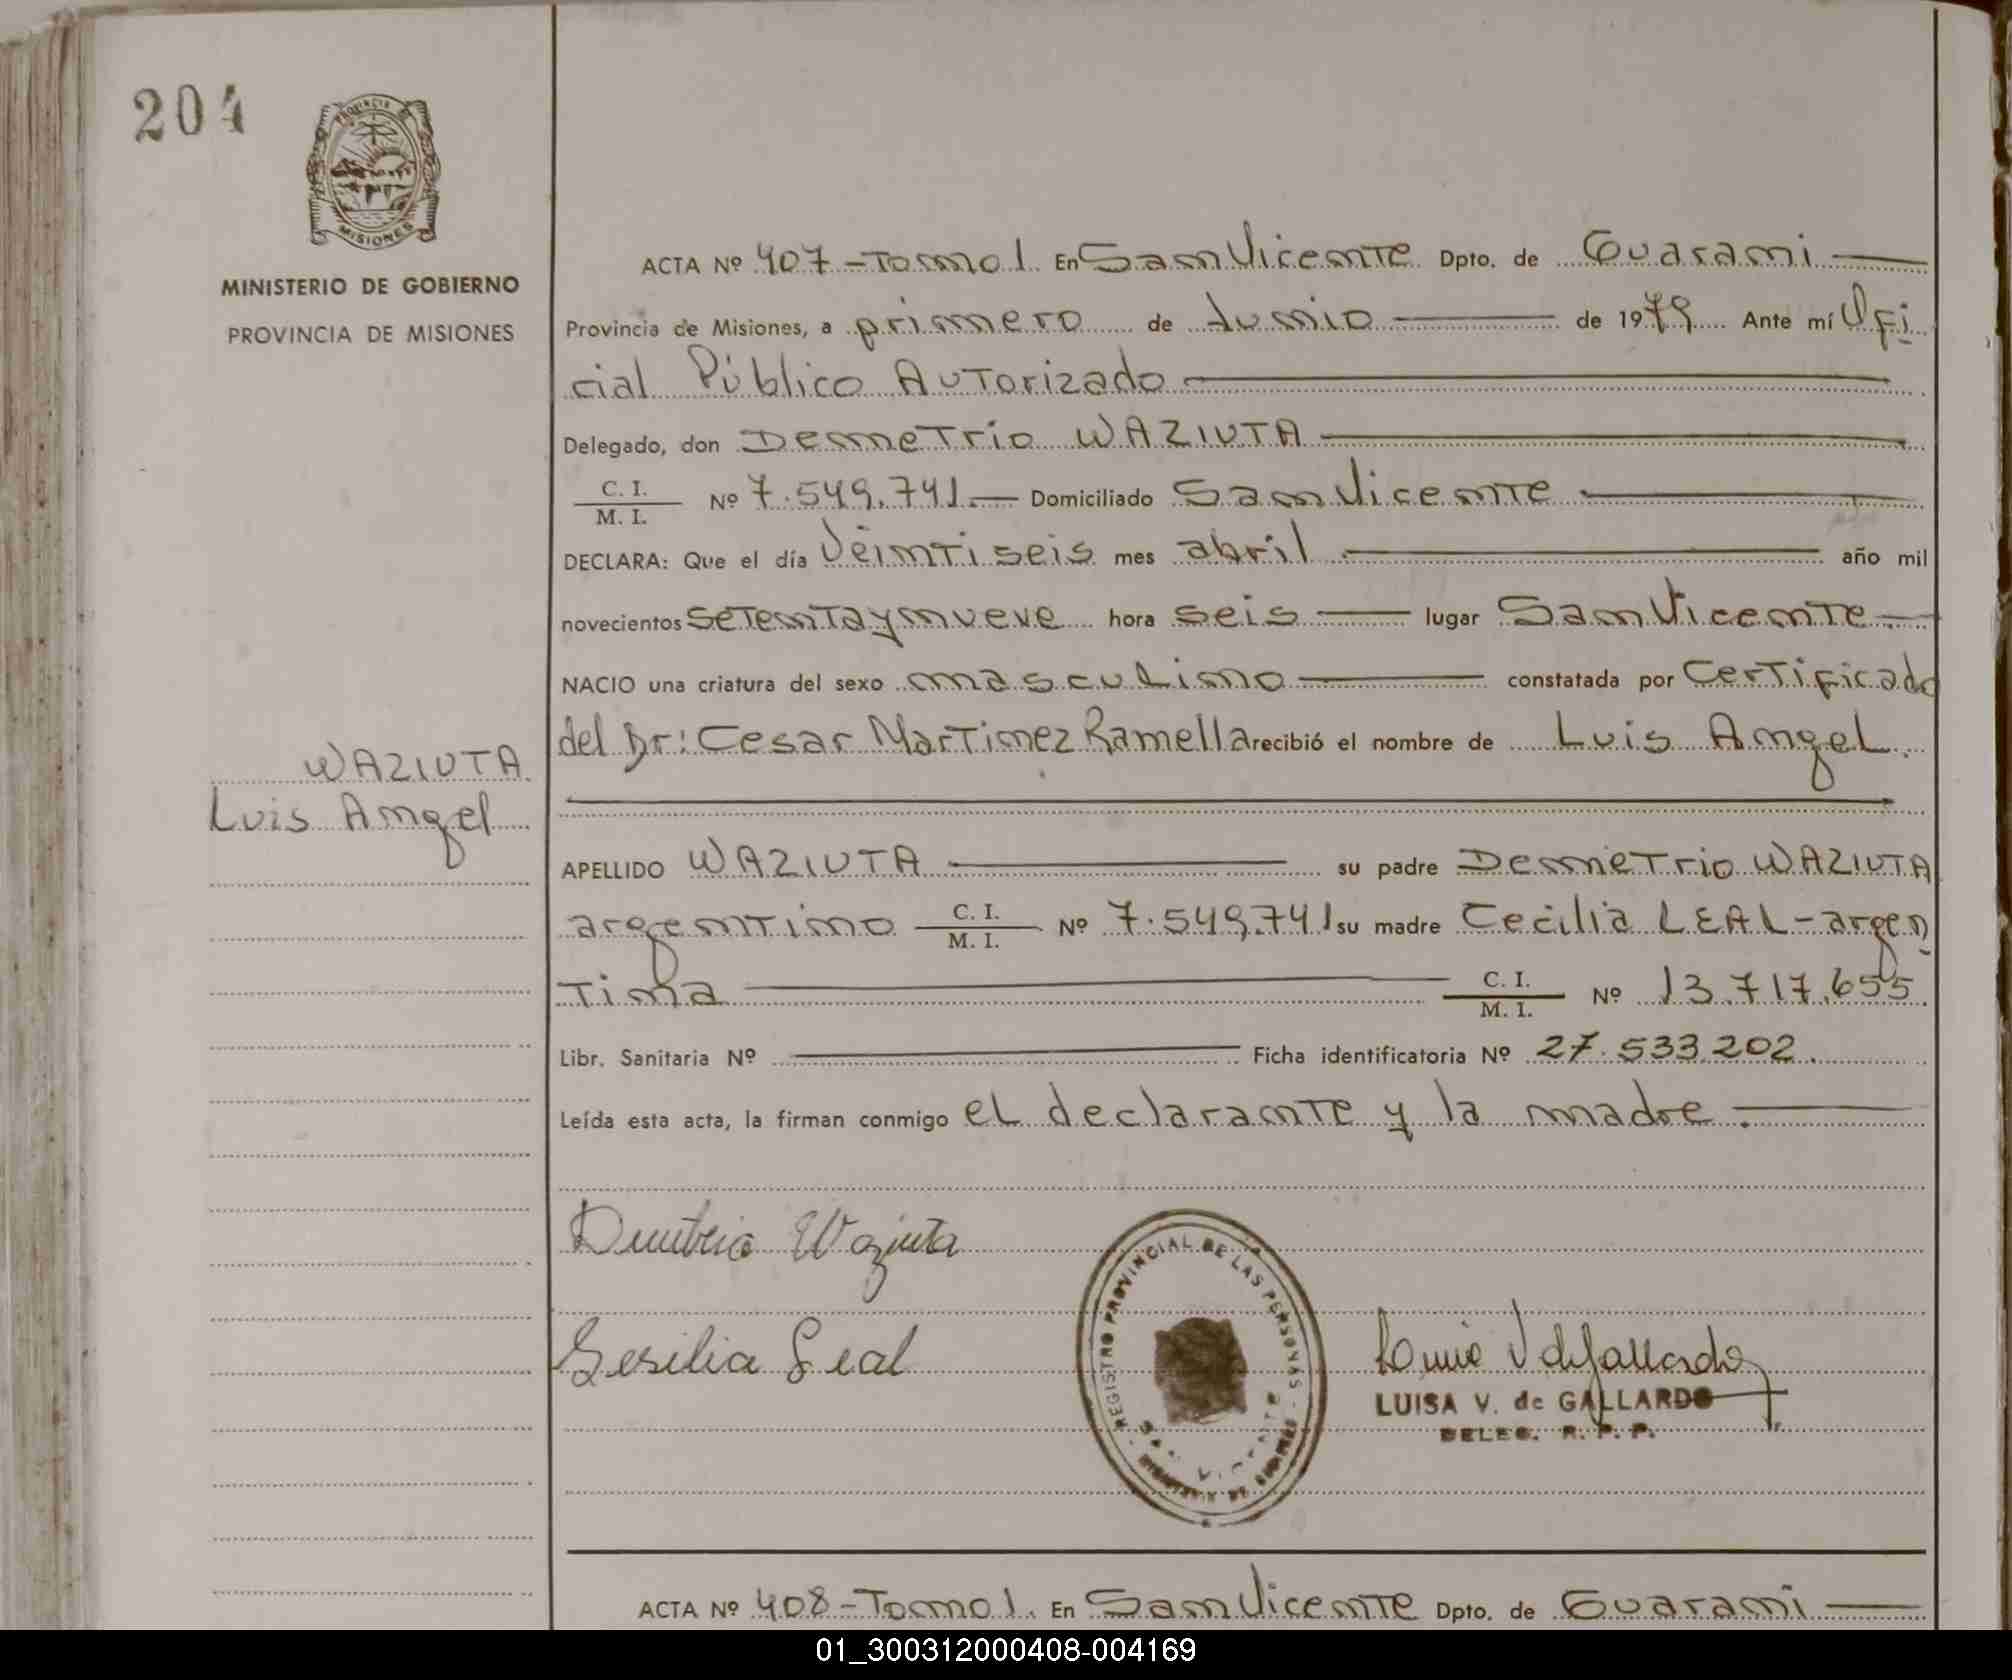 204
PROVINCIA
MISIONES
MINISTERIO DE GOBIERNO
PROVINCIA DE MISIONES
ACTA Nº 407 - Tomo 1. En San Vicente Dpto. de Guarani
Provincia de Misiones, a primero de Junio de 1979 Ante mí Ofi
cial Público Autorizado
Delegado, don Demetrio WAZIUTA
C. I.
M. I. Nº 7.549.741.— Domiciliado San Vicente
DECLARA: Que el día Veintiseis mes abril año mil
novecientos setenta y nueve hora seis lugar San Vicente
NACIO una criatura del sexo masculino constatada por Certificado
del Dr: Cesar Martinez Ramella recibió el nombre de Luis Angel.
WAZIUTA
Luis Angel
APELLIDO WAZIUTA su padre Demetrio WAZIUTA
argentino C. I.
M. I. Nº 7.549.741 su madre Cecilia LEAL - argen
tina C. I.
M. I. Nº 13.717.655
Libr. Sanitaria Nº Ficha identificatoria Nº 27.533.202.
Leída esta acta, la firman conmigo el declarante y la madre.
Demetrio Waziuta
Sesilia Leal
REGISTRO PROVINCIAL DE LAS PERSONAS
LUISA V. de GALLARDO
DELEG. R. P. P.
ACTA Nº 408 - Tomo 1. En San Vicente Dpto. de Guarani
01_300312000408-004169